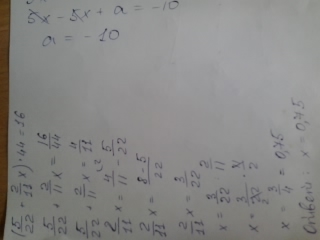 5x - 5x + a = -10
a = -10
(5/22 + 2/11 x) · 44 = 16
5/22 + 2/11 x = 16/44
5/22 + 2/11 x = 4/11
2/11 x = 4/11 - 5/22
2/11 x = 8-5/22
2/11 x = 3/22
x = 3/22 : 2/11
x = 3/22 · 11/2
x = 3/4 = 0,75
Ответ: x = 0,75